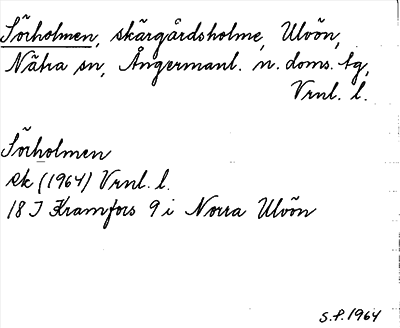 Sörholmen, skärgårdsholme, Ulvön,
Nätra sn, Ångermanl. n. doms. tg,
Vrnl. l.
Sörholmen
ek (1964) Vrnl. l.
18 J Kramfors 9 i Norra Ulvön
S.P. 1964